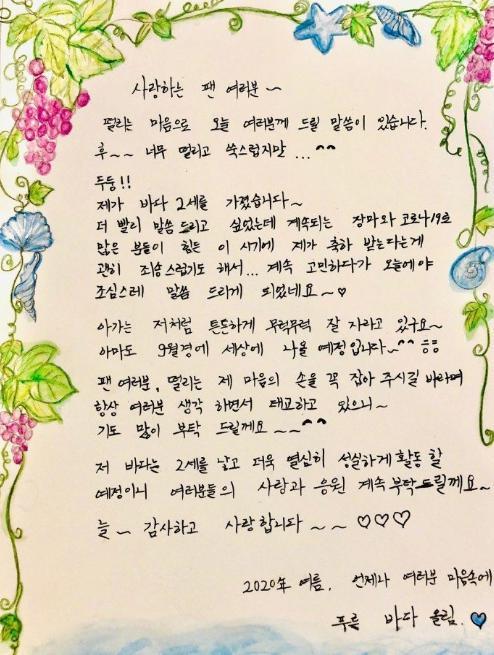 사랑하는 팬 여러분~
떨리는 마음으로 오늘 여러분께 드릴 말씀이 있습니다.
후~~ 너무 떨리고 쑥스럽지만 ...^^
두둥!!
제가 바다 2세를 가졌습니다~
더 빨리 말씀드리고 싶었는데 계속되는 장마와 코로나19로
많은 분들이 힘든 이 시기에 제가 축하 받는다는게
괜히 죄송스럽기도 해서... 계속 고민하다가 오늘에야
조심스레 말씀 드리게 되었네요~♡
아가는 저처럼 튼튼하게 무럭무럭 잘 자라고 있구요~
아마도 9월경에 세상에 나올 예정입니다~^^ ㅎㅎ
팬 여러분, 떨리는 제 마음의 손을 꼭 잡아 주시길 바라며
항상 여러분 생각 하면서 태교하고 있으니~
기도 많이 부탁 드릴께요 ~~^^
저 바다는 2세를 낳고 더욱 열심히 성실하게 활동할
예정이니 여러분들의 사랑과 응원 계속 부탁드릴께요~
늘~ 감사하고 사랑합니다~~♡♡♡
2020年 여름. 언제나 여러분 마음속에
푸를 바다 올림.♥